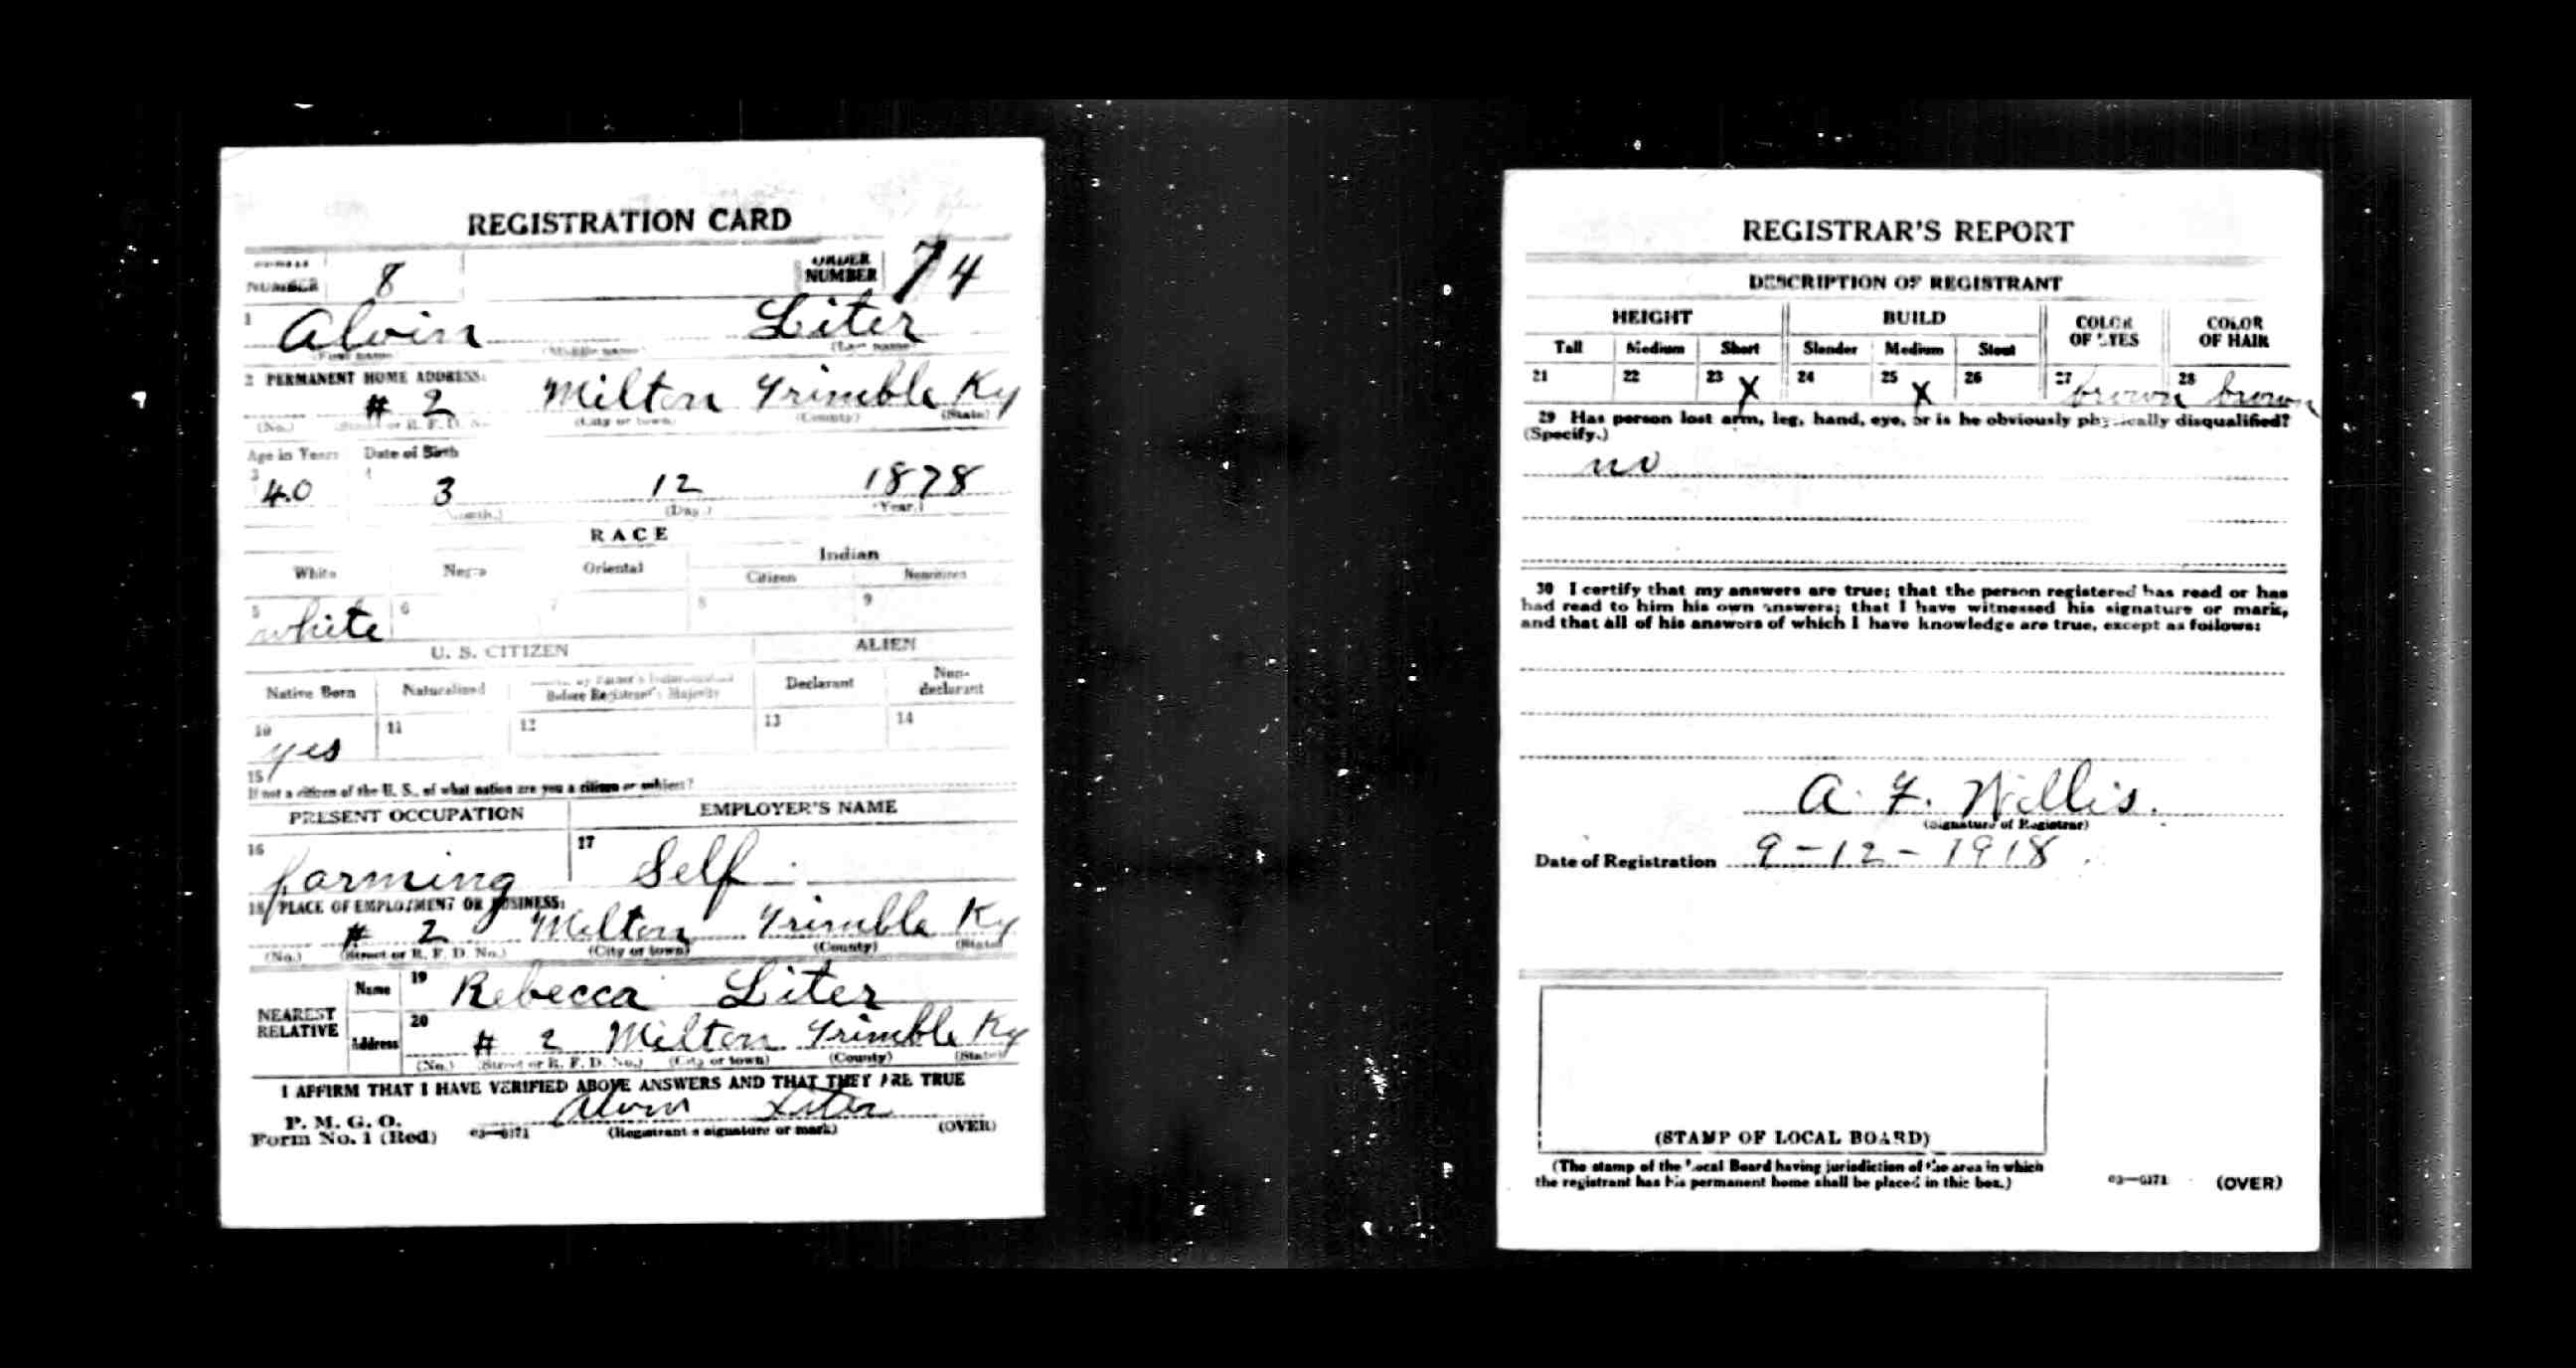 REGISTRATION CARD
NUMBER 8 ORDER NUMBER 74
1 Alvin Liter
(First name) (Middle name) (Last name)
2 PERMANENT HOME ADDRESS:
# 2 Milton Trimble Ky
(No.) (Street or R. F. D. No.) (City or town) (County) (State)
Age in Years Date of Birth
3 40 4 3 12 1878
(Month.) (Day.) (Year.)
RACE
White Negro Oriental Indian
Citizen Noncitizen
5 white 6 7 8 9
U. S. CITIZEN ALIEN
Native Born Naturalized Father's Before Registrant's Majority Declarant Non-declarant
10 yes 11 12 13 14
15
If not a citizen of the U. S., of what nation are you a citizen or subject?
PRESENT OCCUPATION EMPLOYER'S NAME
16 farming 17 Self
18 PLACE OF EMPLOYMENT OR BUSINESS:
# 2 Milton Trimble Ky
(No.) (Street or R. F. D. No.) (City or town) (County) (State)
NEAREST RELATIVE Name 19 Rebecca Liter
Address 20 # 2 Milton Trimble Ky
(No.) (Street or R. F. D. No.) (City or town) (County) (State)
I AFFIRM THAT I HAVE VERIFIED ABOVE ANSWERS AND THAT THEY ARE TRUE
P. M. G. O.
Form No. 1 (Red) 03—6171 Alvin Liter
(Registrant's signature or mark) (OVER)
REGISTRAR'S REPORT
DESCRIPTION OF REGISTRANT
HEIGHT BUILD COLOR OF EYES COLOR OF HAIR
Tall Medium Short Slender Medium Stout
21 22 23 X 24 25 X 26 27 brown 28 brown
29 Has person lost arm, leg, hand, eye, or is he obviously physically disqualified?
(Specify.)
no
30 I certify that my answers are true; that the person registered has read or has
had read to him his own answers; that I have witnessed his signature or mark,
and that all of his answers of which I have knowledge are true, except as follows:
A. F. Willis.
(Signature of Registrar)
Date of Registration 9-12-1918
(STAMP OF LOCAL BOARD)
(The stamp of the Local Board having jurisdiction of the area in which
the registrant has his permanent home shall be placed in this box.)
03—6171 (OVER)